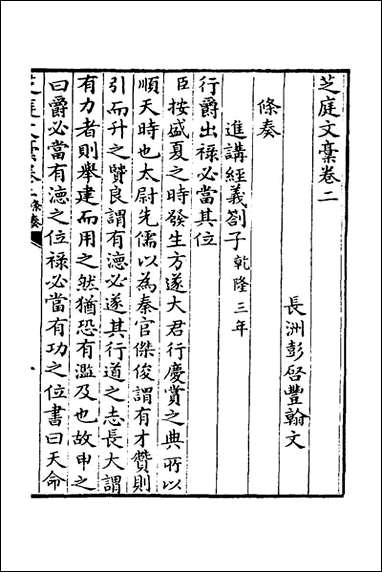 芝庭文稾卷二
長洲彭啓豐翰文
條奏
進講經義劄子乾隆三年
行爵出祿必當其位
臣按盛夏之時發生方遂大君行慶賞之典所以
順天時也太尉先儒以為秦官傑俊謂有才贊則
引而升之賢良謂有德必遂其行道之志長大謂
有力者則舉建而用之然猶恐有濫及也故申之
曰爵必當有德之位祿必當有功之位書曰天命
芝庭文稾卷二條奏